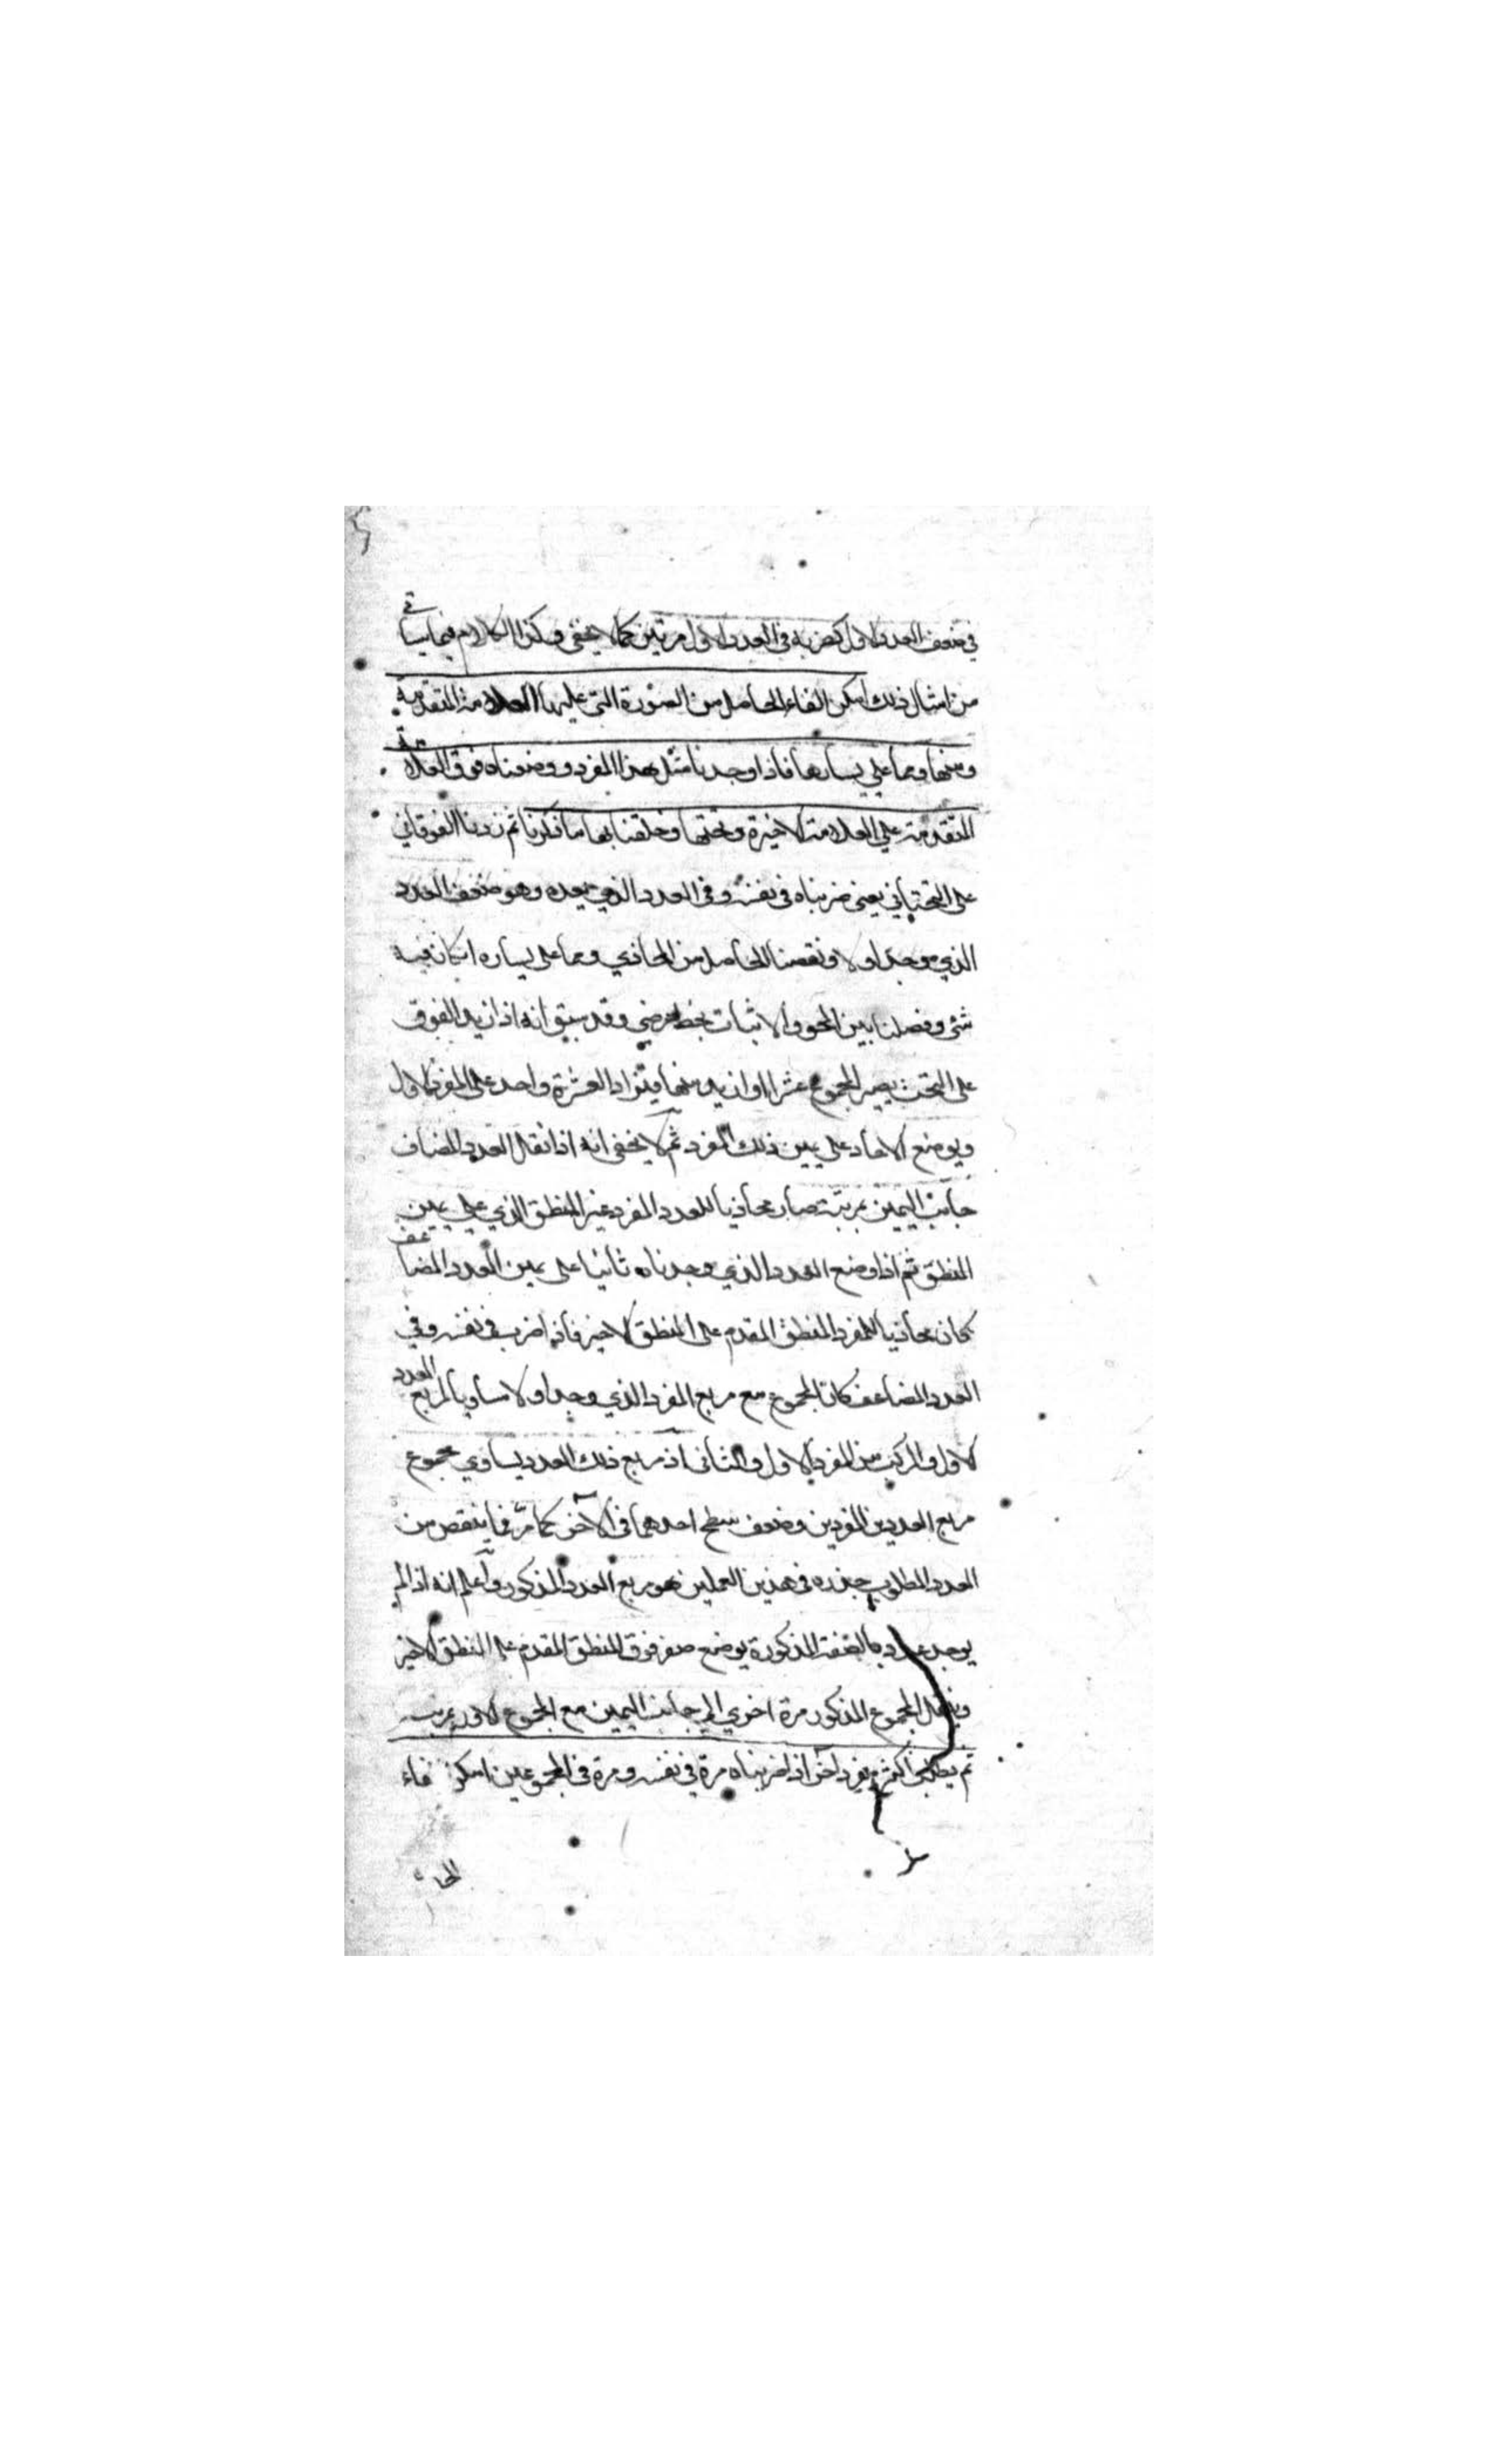 في ضعف العدد الاول كضربه في العدد الاول مرتين كما لا يخفى وكذا الكلام فيما سياتي
من امثال ذلك امكن القاء الحاصل من الصورة التي عليها العلامة المتقدمة
ومنها ومما على يسارها فاذا وجدنا مثل هذا المفرد ووضعناه فوق العلامة
المتقدمة على العلامة الاخيرة وتحتها وعملنا بها ما ذكرنا ثم زدنا الفوقاني
على التحتاني يعني ضربناه في نفسه وفي العدد الذي بعده وهو ضعف العدد
الذي وجد اولا ونقصنا الحاصل من المحاذي ومما على يساره ان كان فيه
شئ وفصلنا بين المحو والاثبات بخط عرضي وقد سبق انه اذا زيد الفوق
على التحت يصير المجموع عشرا او ازيد منها فيزاد العشرة واحد على المفرد الاول
ويوضع الاحاد على يمين ذلك المفرد ثم لا يخفى انه اذا نقل العدد المضاف
جانب اليمين بمرتبة صار محاذيا للعدد المفرد غير المنطق الذي على يمين
المنطق ثم اذا وضع العدد الذي وجدناه ثانيا على يمين العدد المضاعف
كان محاذيا للمفرد المنطق المقدم على المنطق الاخير فاذا ضرب في نفسه وفي
العدد المضاعف كان المجموع مع مربع المفرد الذي وجد اولا مساويا لمربع العدد
الاول والمركب من المفرد الاول والثاني اذ مربع ذلك العدد يساوي مجموع
مربع العددين المفردين وضعف سطح احدهما في الآخر كما مر فما ينقص من
العدد المطلوب جذره في هذين العملين هو مربع العدد المذكور واعلم انه اذا لم
يوجد عدد بالصفة المذكورة يوضع صفر فوق المنطق المقدم على المنطق الاخير
وينقل المجموع المذكور مرة اخرى الى جانب اليمين مع المجموع الاول بمرتبة
ثم يطلب اكثر مفرد آخر اذا ضربناه مرة في نفسه ومرة في المجموعين امكن القاء
الحا